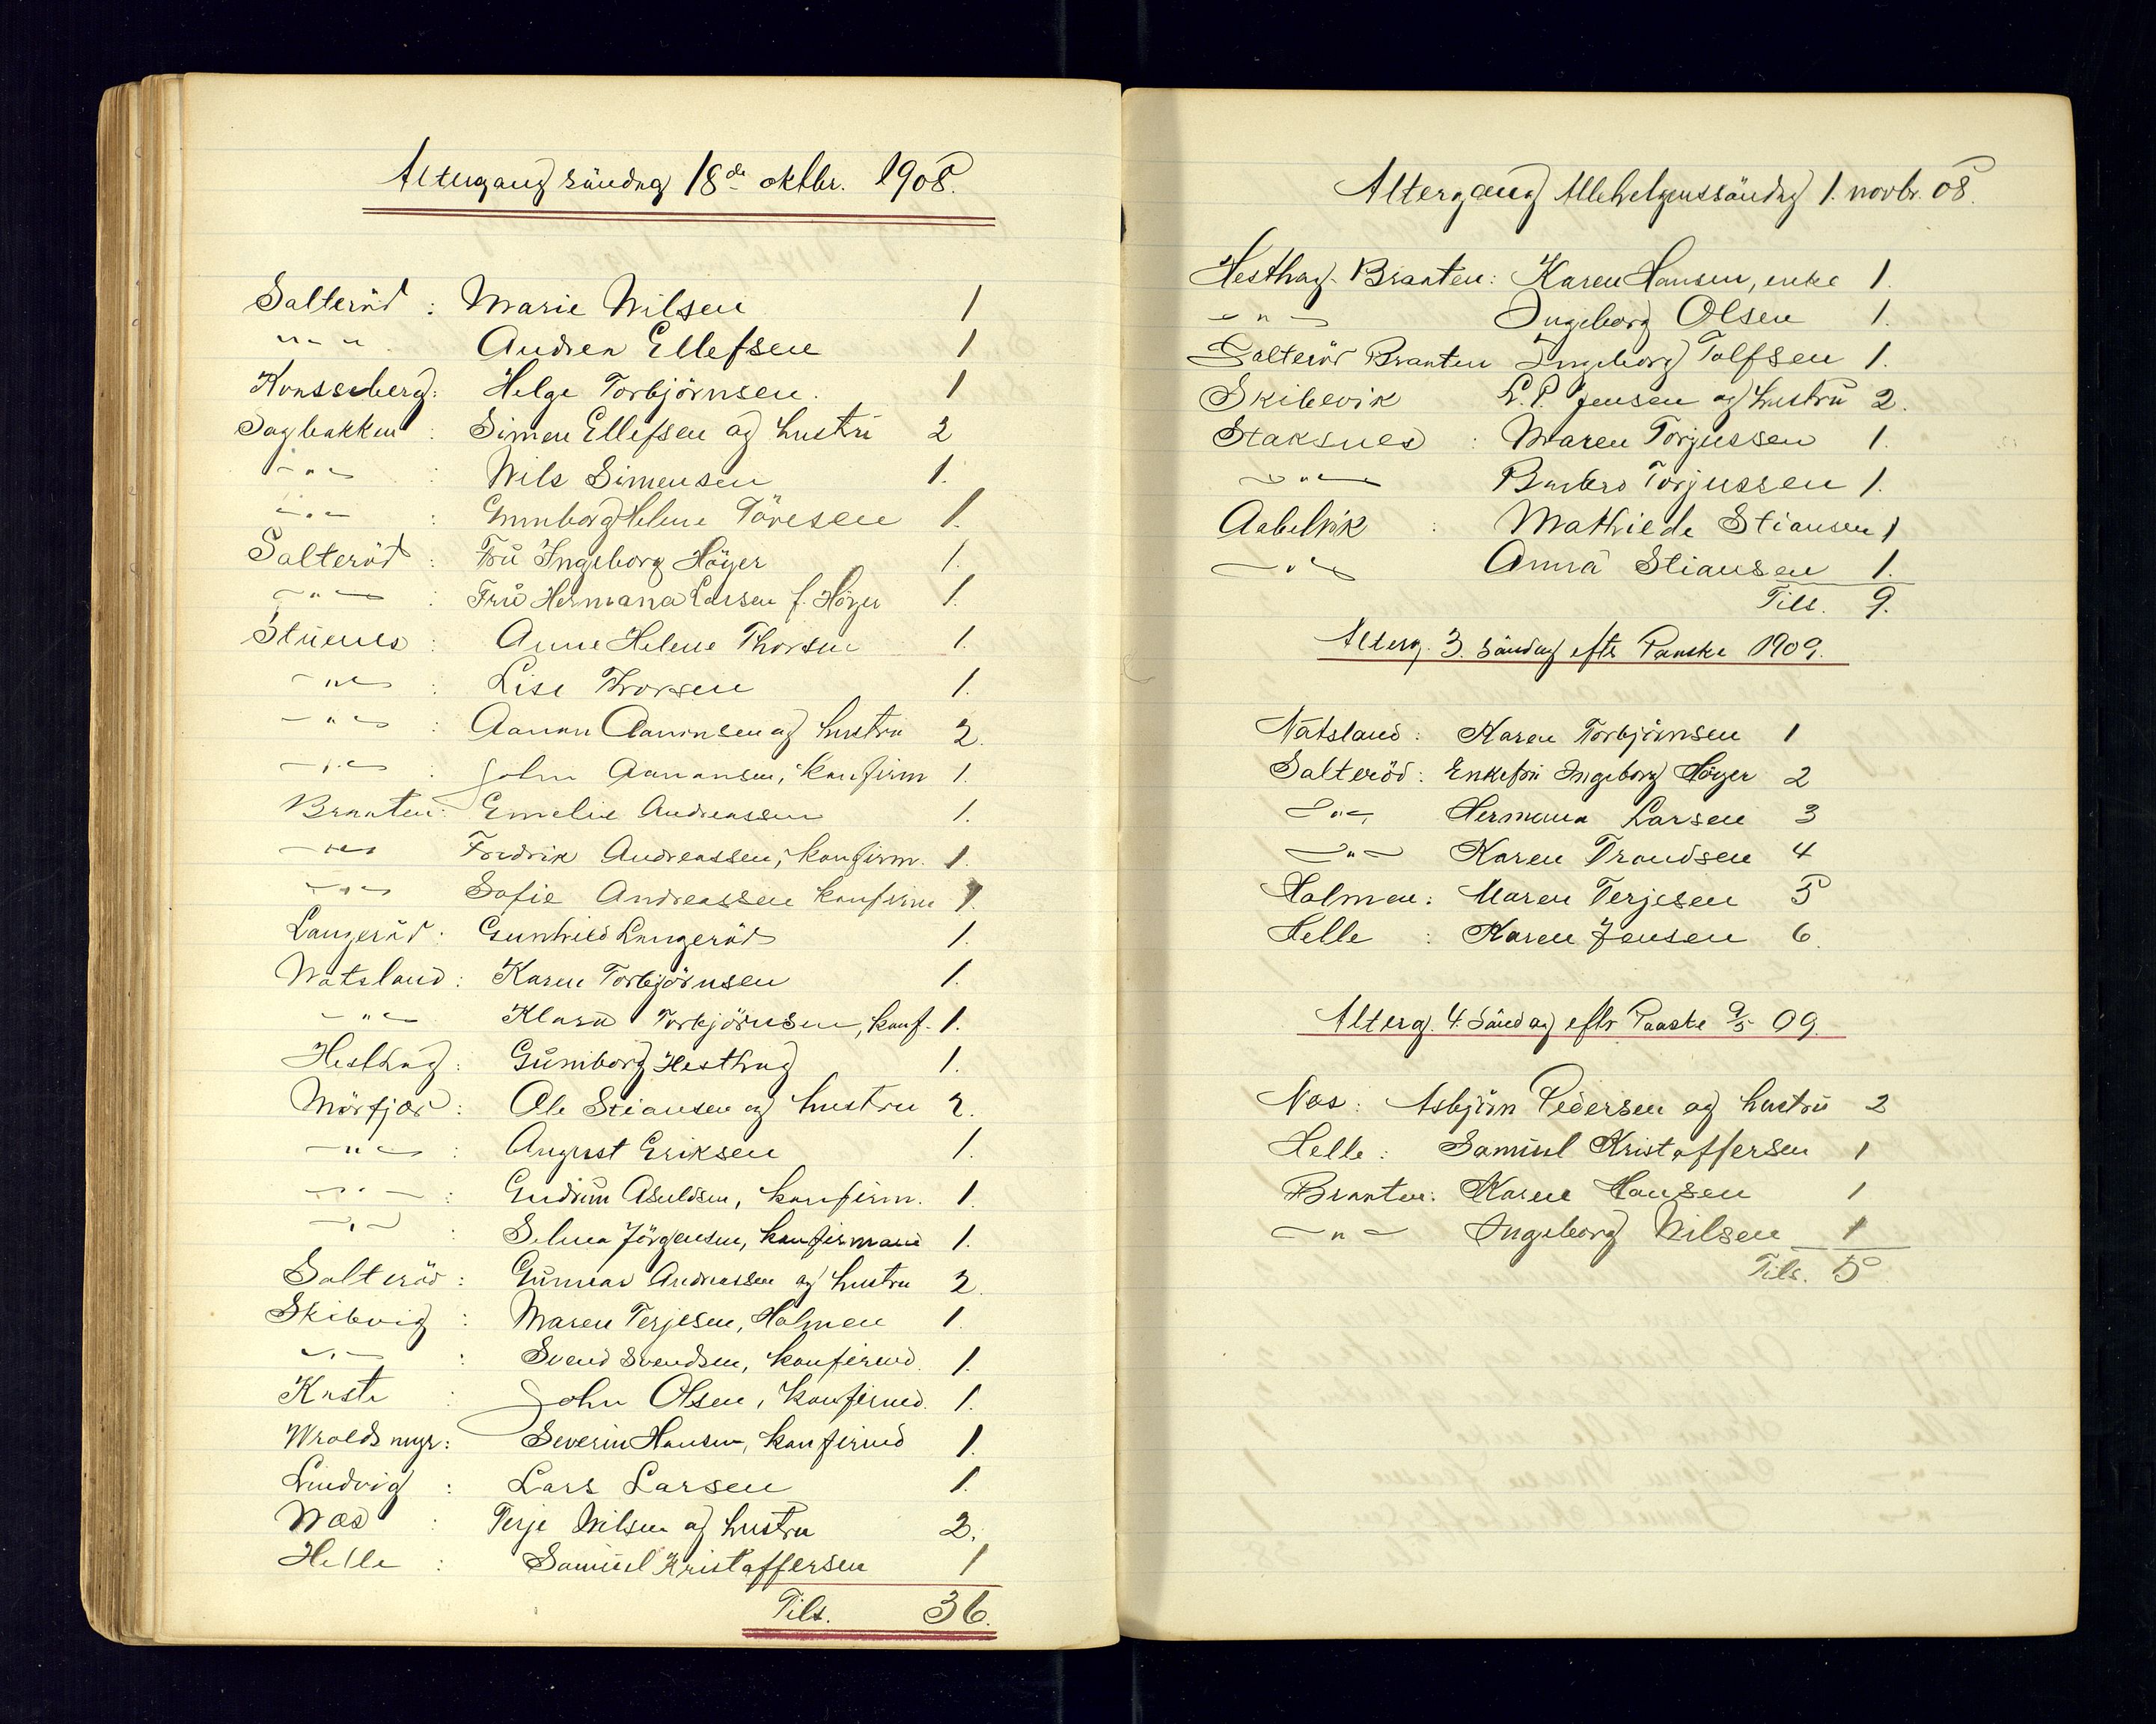 Altergang søndag 18de oktbr. 1908.
Salteröd : Marie Nilsen 1
" Andrea Ellefsen 1
Helge Torbjörnsen. 1
Sagbakken : Simen Ellefsen og hustru 2
-"- : Nils Simensen 1.
-"- : Gunborg Helene Töresen 1.
Salteröd : Fru Ingeborg Höyer 1.
-"- : Fru Hermana Larsen f. Höyer 1.
Stuenes : Anne Helene Thorsen 1.
-"- : Lise Thorsen 1.
-"- : Aanon Aanonsen og hustru 2.
-"- : John Aanonsen, konfirm 1.
Braaten : Emelie Andreassen 1.
-"- Fredrik Andreassen, konfirm. 1.
-"- Sofie Andreassen konfirm 1.
Langeröd : Gunhild Langeröd 1.
Natsland : Karen Torbjörnsen 1.
-"- Klara Torbjörnsen, konf. 1.
Hesthag : Gunborg Hesthag 1.
Mörfjær : Ole Stiansen og hustru 2.
-"- : August Eriksen 1.
-"- : Gudrun Asuldsen, konfirm. 1.
-"- : Selma Jörgensen, konfirmand 1.
Salteröd : Gunnar Andreassen og hustru 2.
Skibvig : Maren Terjesen, Holmen 1.
-"- : Svend Svendsen, konfirmd. 1.
Kaste : John Olsen, konfirmd. 1.
Wroldsmyr : Severin Hansen, konfirmd 1.
Lindvig : Lars Larsen 1.
Næs : Terje Nilsen og hustru 2.
Helle : Samuel Kristoffersen 1
Tils. 36.
Altergang Allehelgenssöndag 1. novbr. 08.
Hesthag-Braaten : Karen Hansen, enke 1.
-"- Ingeborg Olsen 1.
Salteröd Braaten Ingeborg Tolfsen 1.
Skibevik L. P. Jensen og hustru 2.
Staksnes : Maren Torjussen 1.
-"- Barbro Torjussen 1.
Aabelvik : Mathilde Stiansen 1
-"- Anna Stiansen 1.
Tils. 9.
Alterg. 3. Söndag eftr Paaske 1909.
Natsland : Karen Torbjörnsen 1
Salteröd : Enkefru Ingeborg Höyer 2
-"- Hermana Larsen 3
-"- Karen Trondsen 4
Holmen : Maren Terjesen 5
Helle : Karen Jensen 6.
Alterg. 4. Söndag eftr Paaske 9/5 09.
Næs : Asbjörn Pedersen og hustru 2
Helle : Samuel Kristoffersen 1
Braaten : Karen Hansen 1
-"- Ingeborg Nilsen 1
Tils. 5